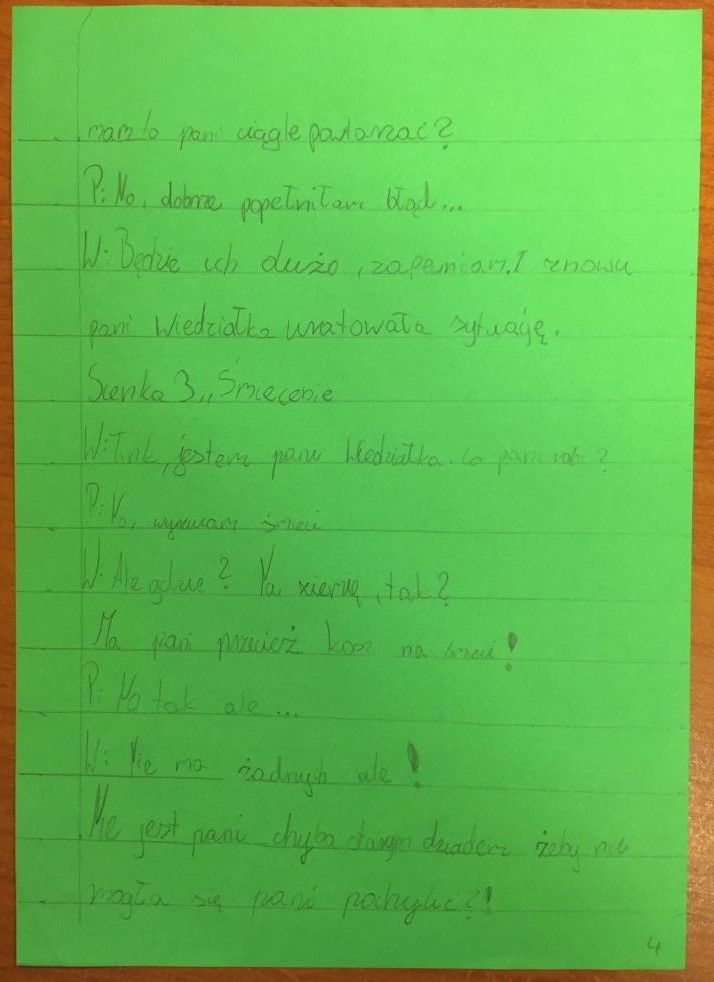 mam to pani ciągle powtarzać?
P: No, dobrze popełniłam błąd...
W: Będzie ich dużo, zapewniam. I znowu
pani Wiedziałka uratowała sytuację.
Scenka 3 „Śmiecenie
W: Tink, jestem pani Wiedziałka. Co pani robi?
P: No, wyrzucam śmieci
W: Ale gdzie? Na ziemię, tak?
Ma pani przecież kosz na śmieci!
P: No tak ale...
W: Nie ma żadnych ale!
Nie jest pani chyba starym dziadem żeby nie
mogła się pani pochylić?!
4